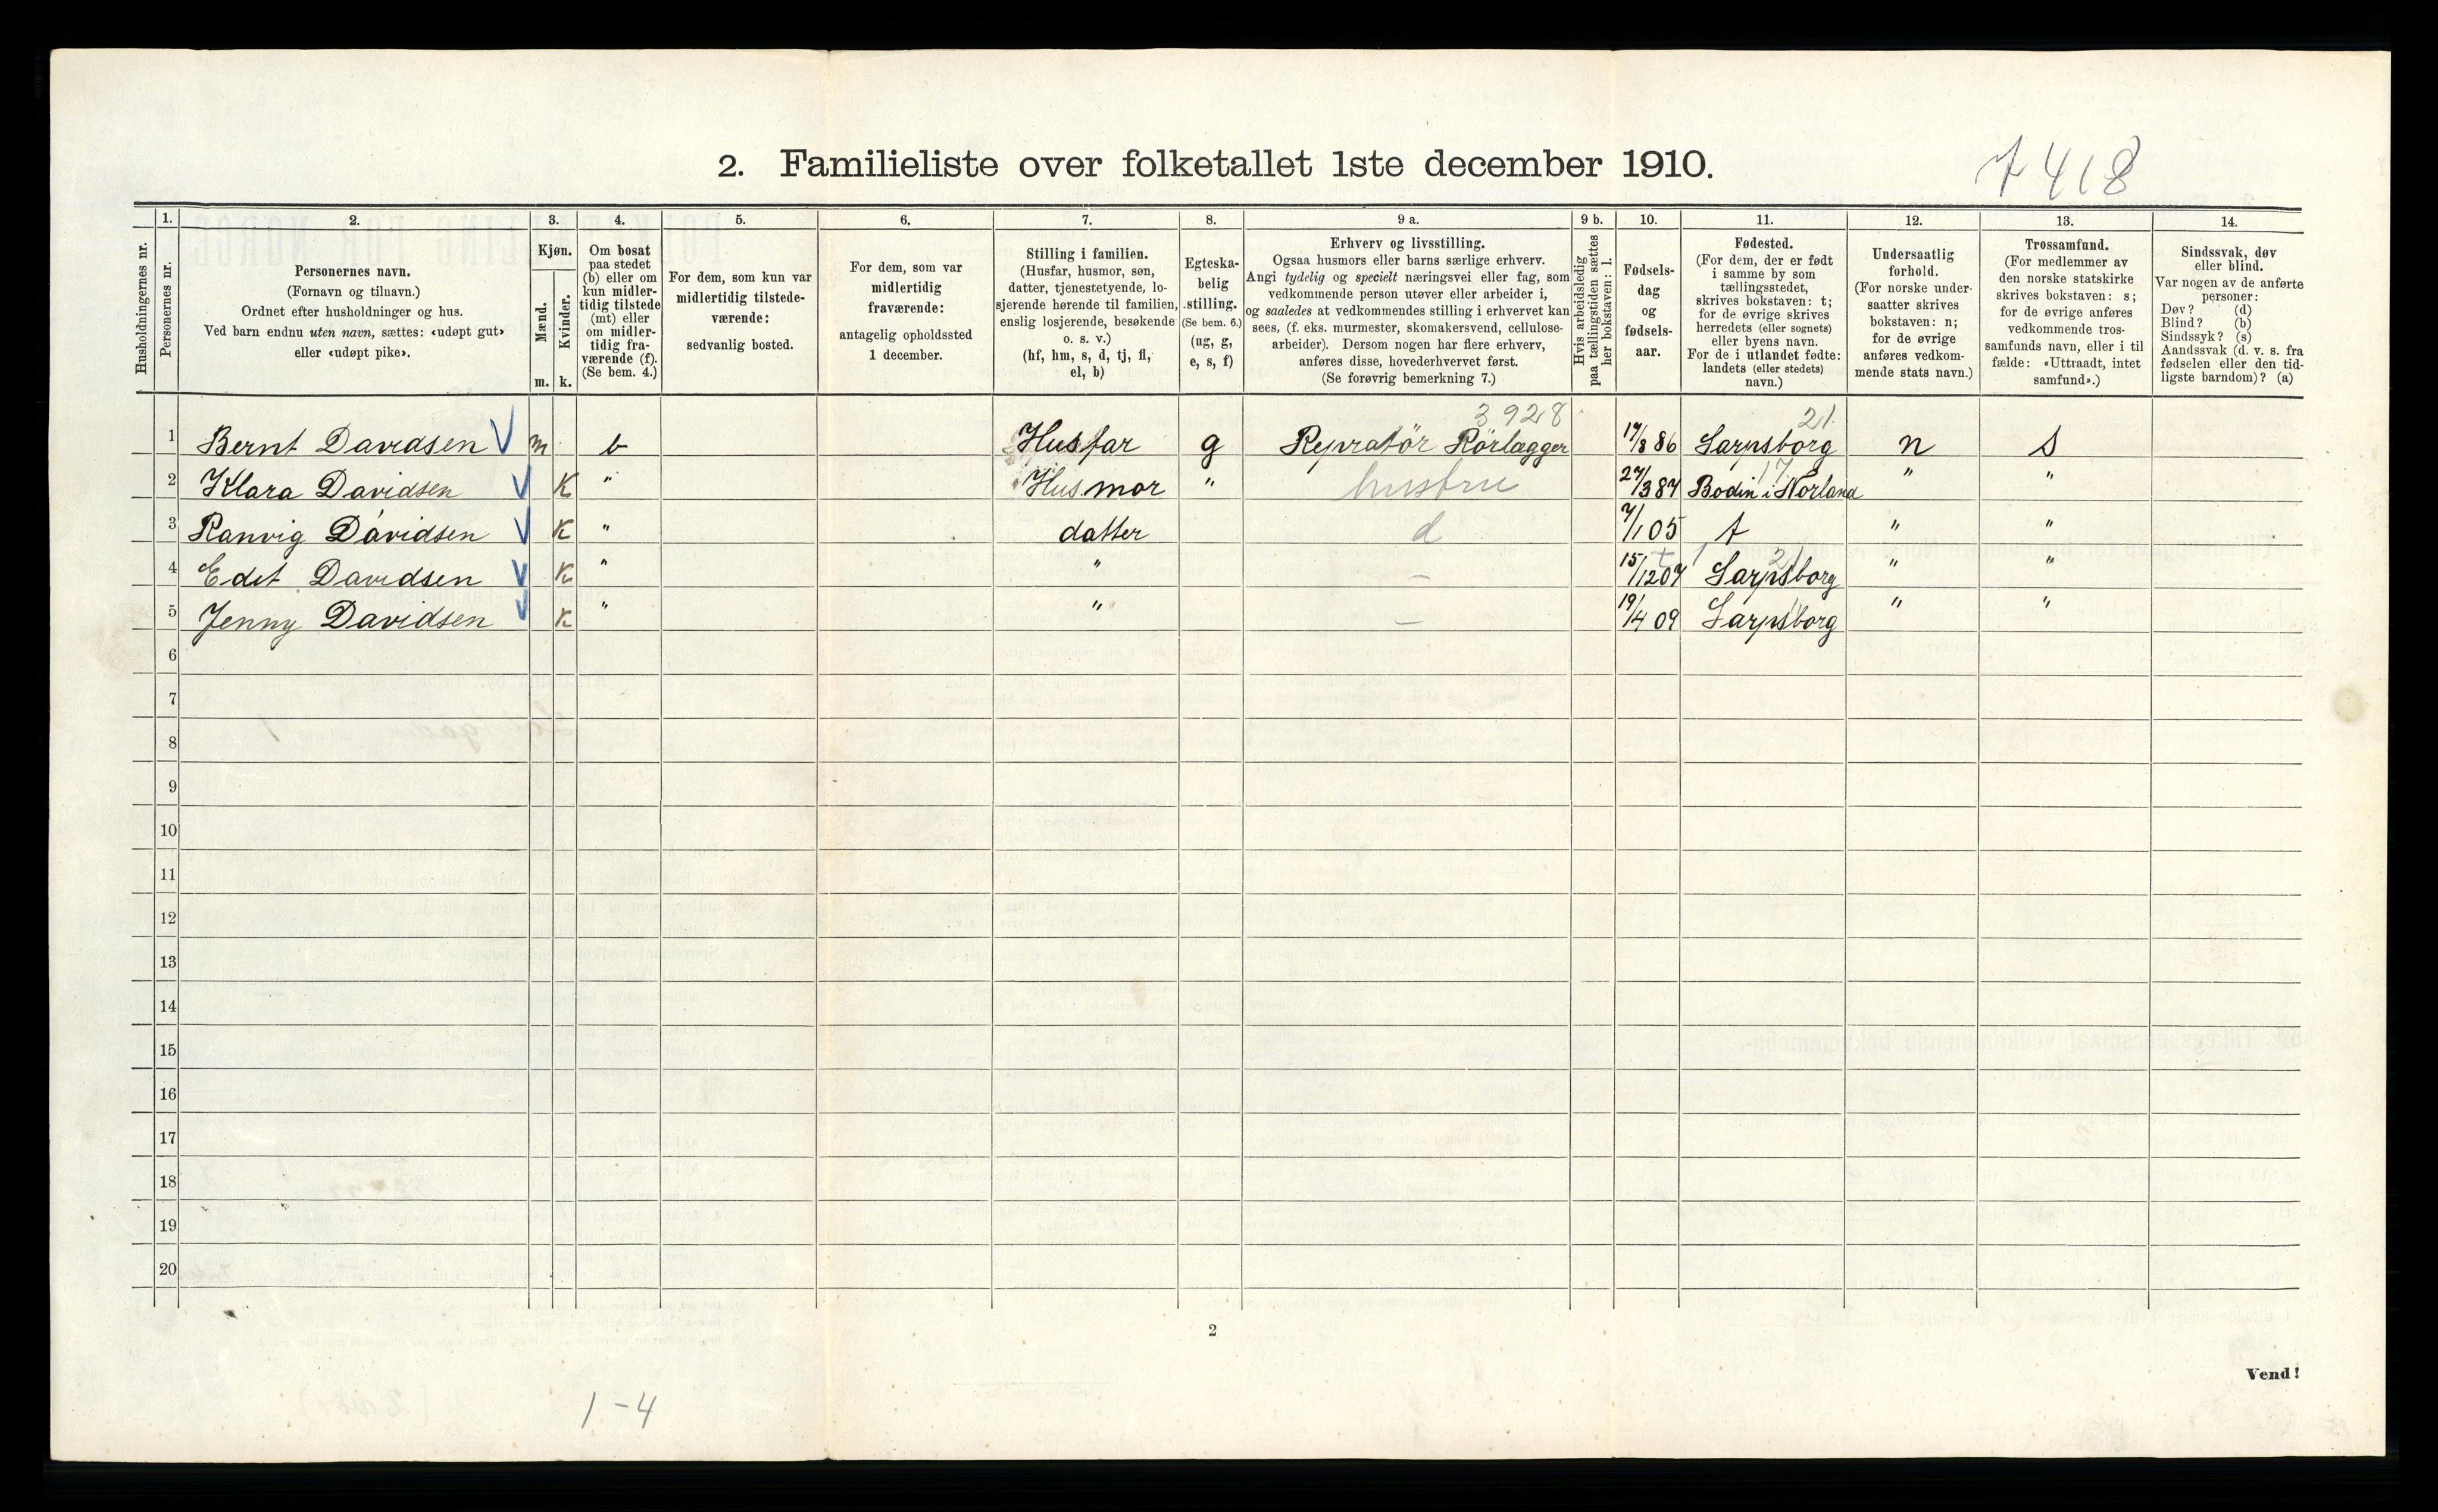 2. Familieliste over folketallet 1ste december 1910.
7418
Husholdningernes nr.
1.
Personernes nr.
2.
Personernes navn.
(Fornavn og tilnavn.)
Ordnet efter husholdninger og hus.
Ved barn endnu uten navn, sættes: «udøpt gut»
eller «udøpt pike».
3.
Kjøn.
Mænd.
m.
Kvinder.
k.
4.
Om bosat
paa stedet
(b) eller om
kun midler-
tidig tilstede
(mt) eller
om midler-
tidig fra-
værende (f).
(Se bem. 4.)
5.
For dem, som kun var
midlertidig tilstede-
værende:
sedvanlig bosted.
6.
For dem, som var
midlertidig
fraværende:
antagelig opholdssted
1 december.
7.
Stilling i familien.
(Husfar, husmor, søn,
datter, tjenestetyende, lo-
sjerende hørende til familien,
enslig losjerende, besøkende
o. s. v.)
(hf, hm, s, d, tj, fl,
el, b)
8.
Egteska-
belig
stilling.
(Se bem. 6.)
(ug, g,
e, s, f)
9 a.
Erhverv og livsstilling.
Ogsaa husmors eller barns særlige erhverv.
Angi tydelig og specielt næringsvei eller fag, som
vedkommende person utøver eller arbeider i,
og saaledes at vedkommendes stilling i erhvervet kan
sees, (f. eks. murmester, skomakersvend, cellulose-
arbeider). Dersom nogen har flere erhverv,
anføres disse, hovederhvervet først.
(Se forøvrig bemerkning 7.)
9 b.
Hvis arbeidsledig
paa tællingstiden sættes
her bokstaven: l.
10.
Fødsels-
dag
og
fødsels-
aar.
11.
Fødested.
(For dem, der er født
i samme by som
tællingsstedet,
skrives bokstaven: t;
for de øvrige skrives
herredets (eller sognets)
eller byens navn.
For de i utlandet fødte:
landets (eller stedets)
navn.)
12.
Undersaatlig
forhold.
(For norske under-
saatter skrives
bokstaven: n;
for de øvrige
anføres vedkom-
mende stats navn.)
13.
Trossamfund.
(For medlemmer av
den norske statskirke
skrives bokstaven: s;
for de øvrige anføres
vedkommende tros-
samfunds navn, eller i til
fælde: «Uttraadt, intet
samfund».)
14.
Sindssvak, døv
eller blind.
Var nogen av de anførte
personer:
Døv? (d)
Blind? (b)
Sindssyk? (s)
Aandssvak (d. v. s. fra
fødselen eller den tid-
ligste barndom)? (a)
3928 21
1 Bernt Davidsen V m b Husfar g Repratör Rörlægger 17/8 86 Sarpsborg n S
17
2 Klara Davidsen V K " Husmor " hustru 27/3 87 Bodin i Norland " "
3 Ranvig Davidsen V K " datter d 7/1 05 t " "
21
4 Edit Davidsen V K " " – 15/12 07 Sarpsborg " "
5 Jenny Davidsen V K " " – 19/4 09 Sarpsborg " "
6
7
8
9
10
11
12
13
14
15
16
17
18
19
20
2
Vend!
1-4